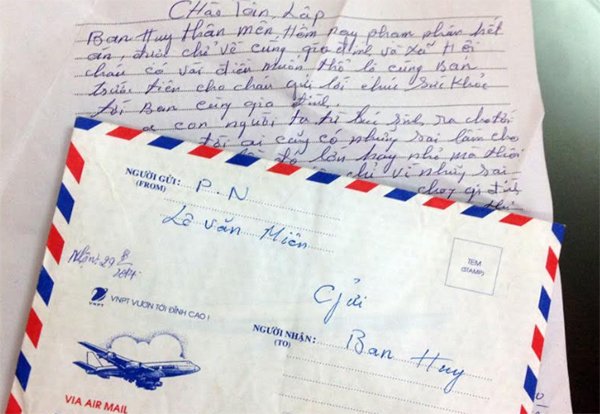 Chào Tân Lập
Ban Huy thân mến, Hôm nay phạm phán hết
án, được chở về cùng gia đình và xã Hội
cháu có vài điều muốn thổ lộ cùng Ban
trước tiên cho cháu gửi lời chúc sức khỏe
tới Ban cùng gia đình.
con người ta từ lúc sinh ra cho tới
ai cũng có những sai lầm cho
lớn hay nhỏ mà thôi
chỉ vì những sai
gia đình
NGƯỜI GỬI: P.N
(FROM)
Lê Văn Miên
Nhận: 29/8/2014
TEM
(STAMP)
VNPT
VNPT VƯƠN TỚI ĐỈNH CAO !
Gửi
NGƯỜI NHẬN: Ban Huy
(TO)
VIA AIR MAIL